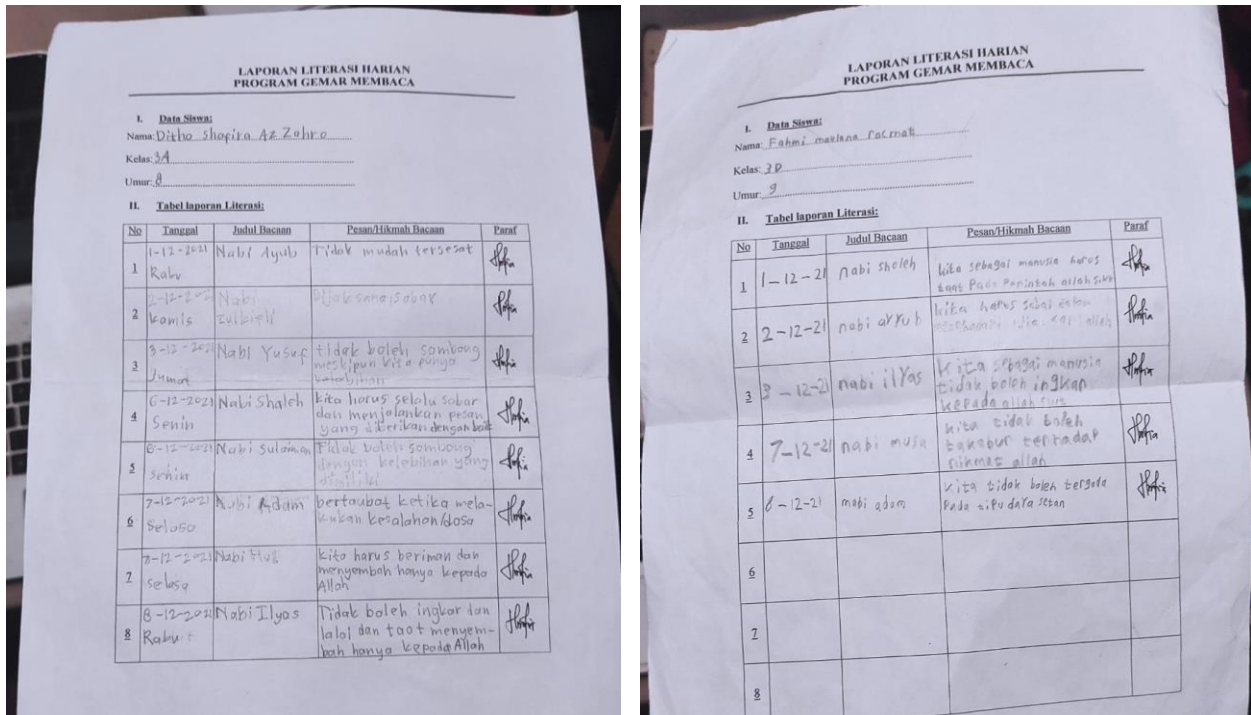 LAPORAN LITERASI HARIAN
PROGRAM GEMAR MEMBACA
I. Data Siswa:
Nama: Ditho Shafira Az Zahro
Kelas: 3A
Umur: 8
II. Tabel laporan Literasi:
No Tanggal Judul Bacaan Pesan/Hikmah Bacaan Paraf
1 1-12-2021 Rabu Nabi Ayub Tidak mudah tersesat
2 2-12-2021 Kamis Nabi
3 3-12-2021 Jumat Nabi Yusuf tidak boleh sombong
meskipun kita punya
4 6-12-2021 Senin Nabi Shaleh kita harus selalu sabar
dan menjalankan pesan
yang diberikan dengan baik
5 6-12-2021 Senin Nabi Sulaiman Tidak boleh sombong
dengan kelebihan yang
dimiliki
6 7-12-2021 Selasa Nabi Adam bertaubat ketika mela-
kukan kesalahan/dosa
7 7-12-2021 Selasa Nabi kita harus beriman dan
menyembah hanya kepada
Allah
8 8-12-2021 Rabu Nabi Ilyas Tidak boleh ingkar dan
lalai dan taat menyem-
bah hanya kepada Allah
LAPORAN LITERASI HARIAN
PROGRAM GEMAR MEMBACA
I. Data Siswa:
Nama: Fahmi maulana racmat
Kelas: 3D
Umur: 9
II. Tabel laporan Literasi:
No Tanggal Judul Bacaan Pesan/Hikmah Bacaan Paraf
1 1-12-21 nabi sholeh kita sebagai manusia harus
taat Pada Perintah allah swt
2 2-12-21 nabi ayyub kita harus sabar dalam
allah
3 3-12-21 nabi ilyas kita sebagai manusia
tidak boleh ingkar
kepada allah swt
4 7-12-21 nabi musa kita tidak boleh
takabur terhadap
nikmat allah
5 8-12-21 nabi adam kita tidak boleh tergoda
Pada tipu daya setan
6
7
8